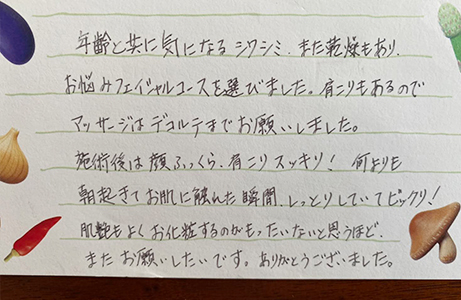 年齢と共に気になるシワシミ、また乾燥もあり、
お悩みフェイシャルコースを選びました。肩こりもあるので
マッサージはデコルテまでお願いしました。
施術後は顔ふっくら、肩こりスッキリ! 何よりも
朝起きてお肌に触れた瞬間、しっとりしていてビックリ!
肌艶もよくお化粧するのがもったいないと思うほど、
またお願いしたいです。ありがとうございました。